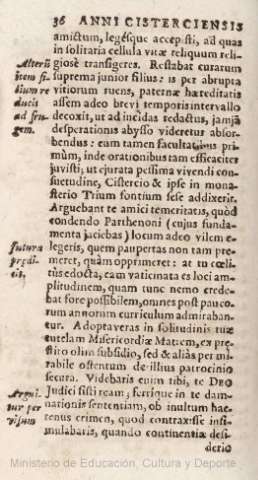 36 ANNI CISTERCIENSIS
amictum, legésque accepisti, ad quas
in solitaria cellula vitæ reliquum reli-
giosè transigeres. Restabat curarum
Alterū
suprema junior filius: is per abrupta
item fi-
vitiorum ruens, paternæ hæreditatis
lium re
assem adeo brevi temporis intervallo
ducis
decoxit, ut ad incidas redactus, jamjā
ad fru-
desperationis abysso videretur absor-
gem.
bendus: eum tamen facultatibus pri-
mùm, inde orationibus tam efficaciter
juvisti, ut ejurata pessima vivendi con-
suetudine, Cistercio & ipse in mona-
sterio Trium fontium sese addixerit.
Arguebant te amici temeritatis, quòd
condendo Parthenoni (cujus funda-
menta jaciebas) locum adeo vilem e-
futura
legeris, quem paupertas non tam pre-
prædi-
meret, quàm opprimeret: at tu cœli-
cis,
tus edocta, eam vaticinata es loci am-
plitudinem, quam tunc nemo crede-
bat fore possibilem, omnes post pauco-
rum annorum curriculum admiraban-
tur. Adoptaveras in solitudinis tuæ
tutelam Misericordiæ Matrem, ex pr-
stito olim subsidio, sed & aliàs per mi-
rabile ostentum de illius patrocinio
secura. Videbaris enim tibi, te DEO
Judici sisti ream; ferrique in te dam-
Argui-
nationis sententiam, ob inultum hac-
tur per
tenus crimen, quod contraxisse insi-
visum
mulabaris, quando continentiæ desi-
derio
Ministerio de Educación, Cultura y Deporte